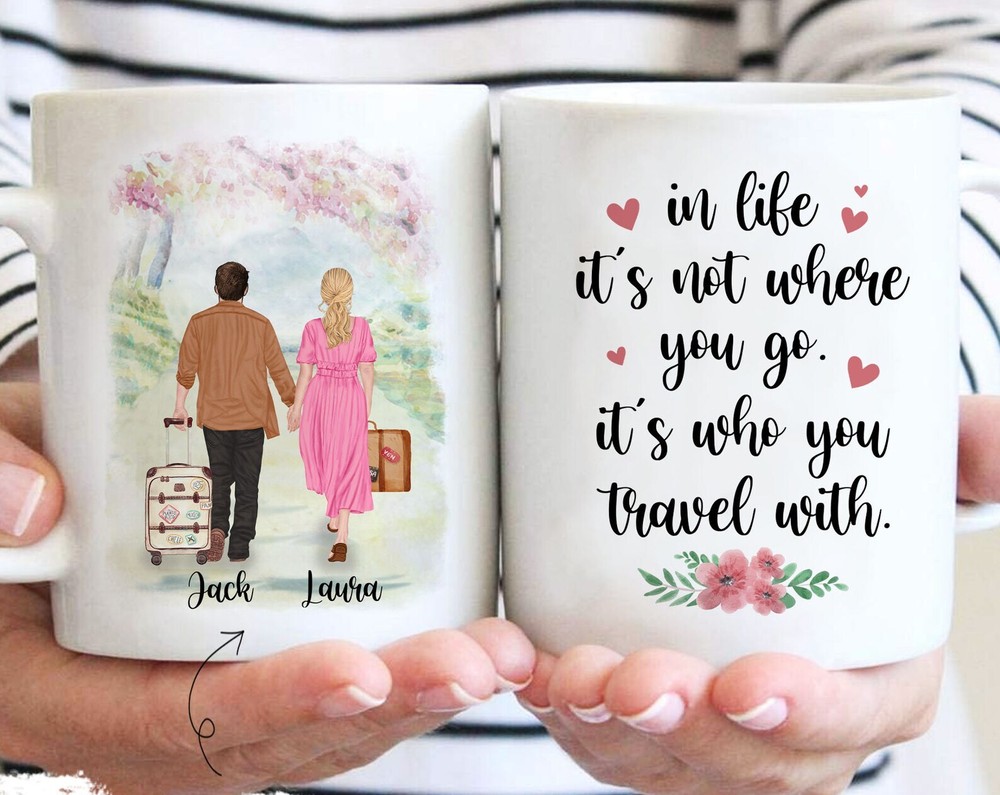 Jack Laura
in life
it's not where
you go.
it's who you
travel with.